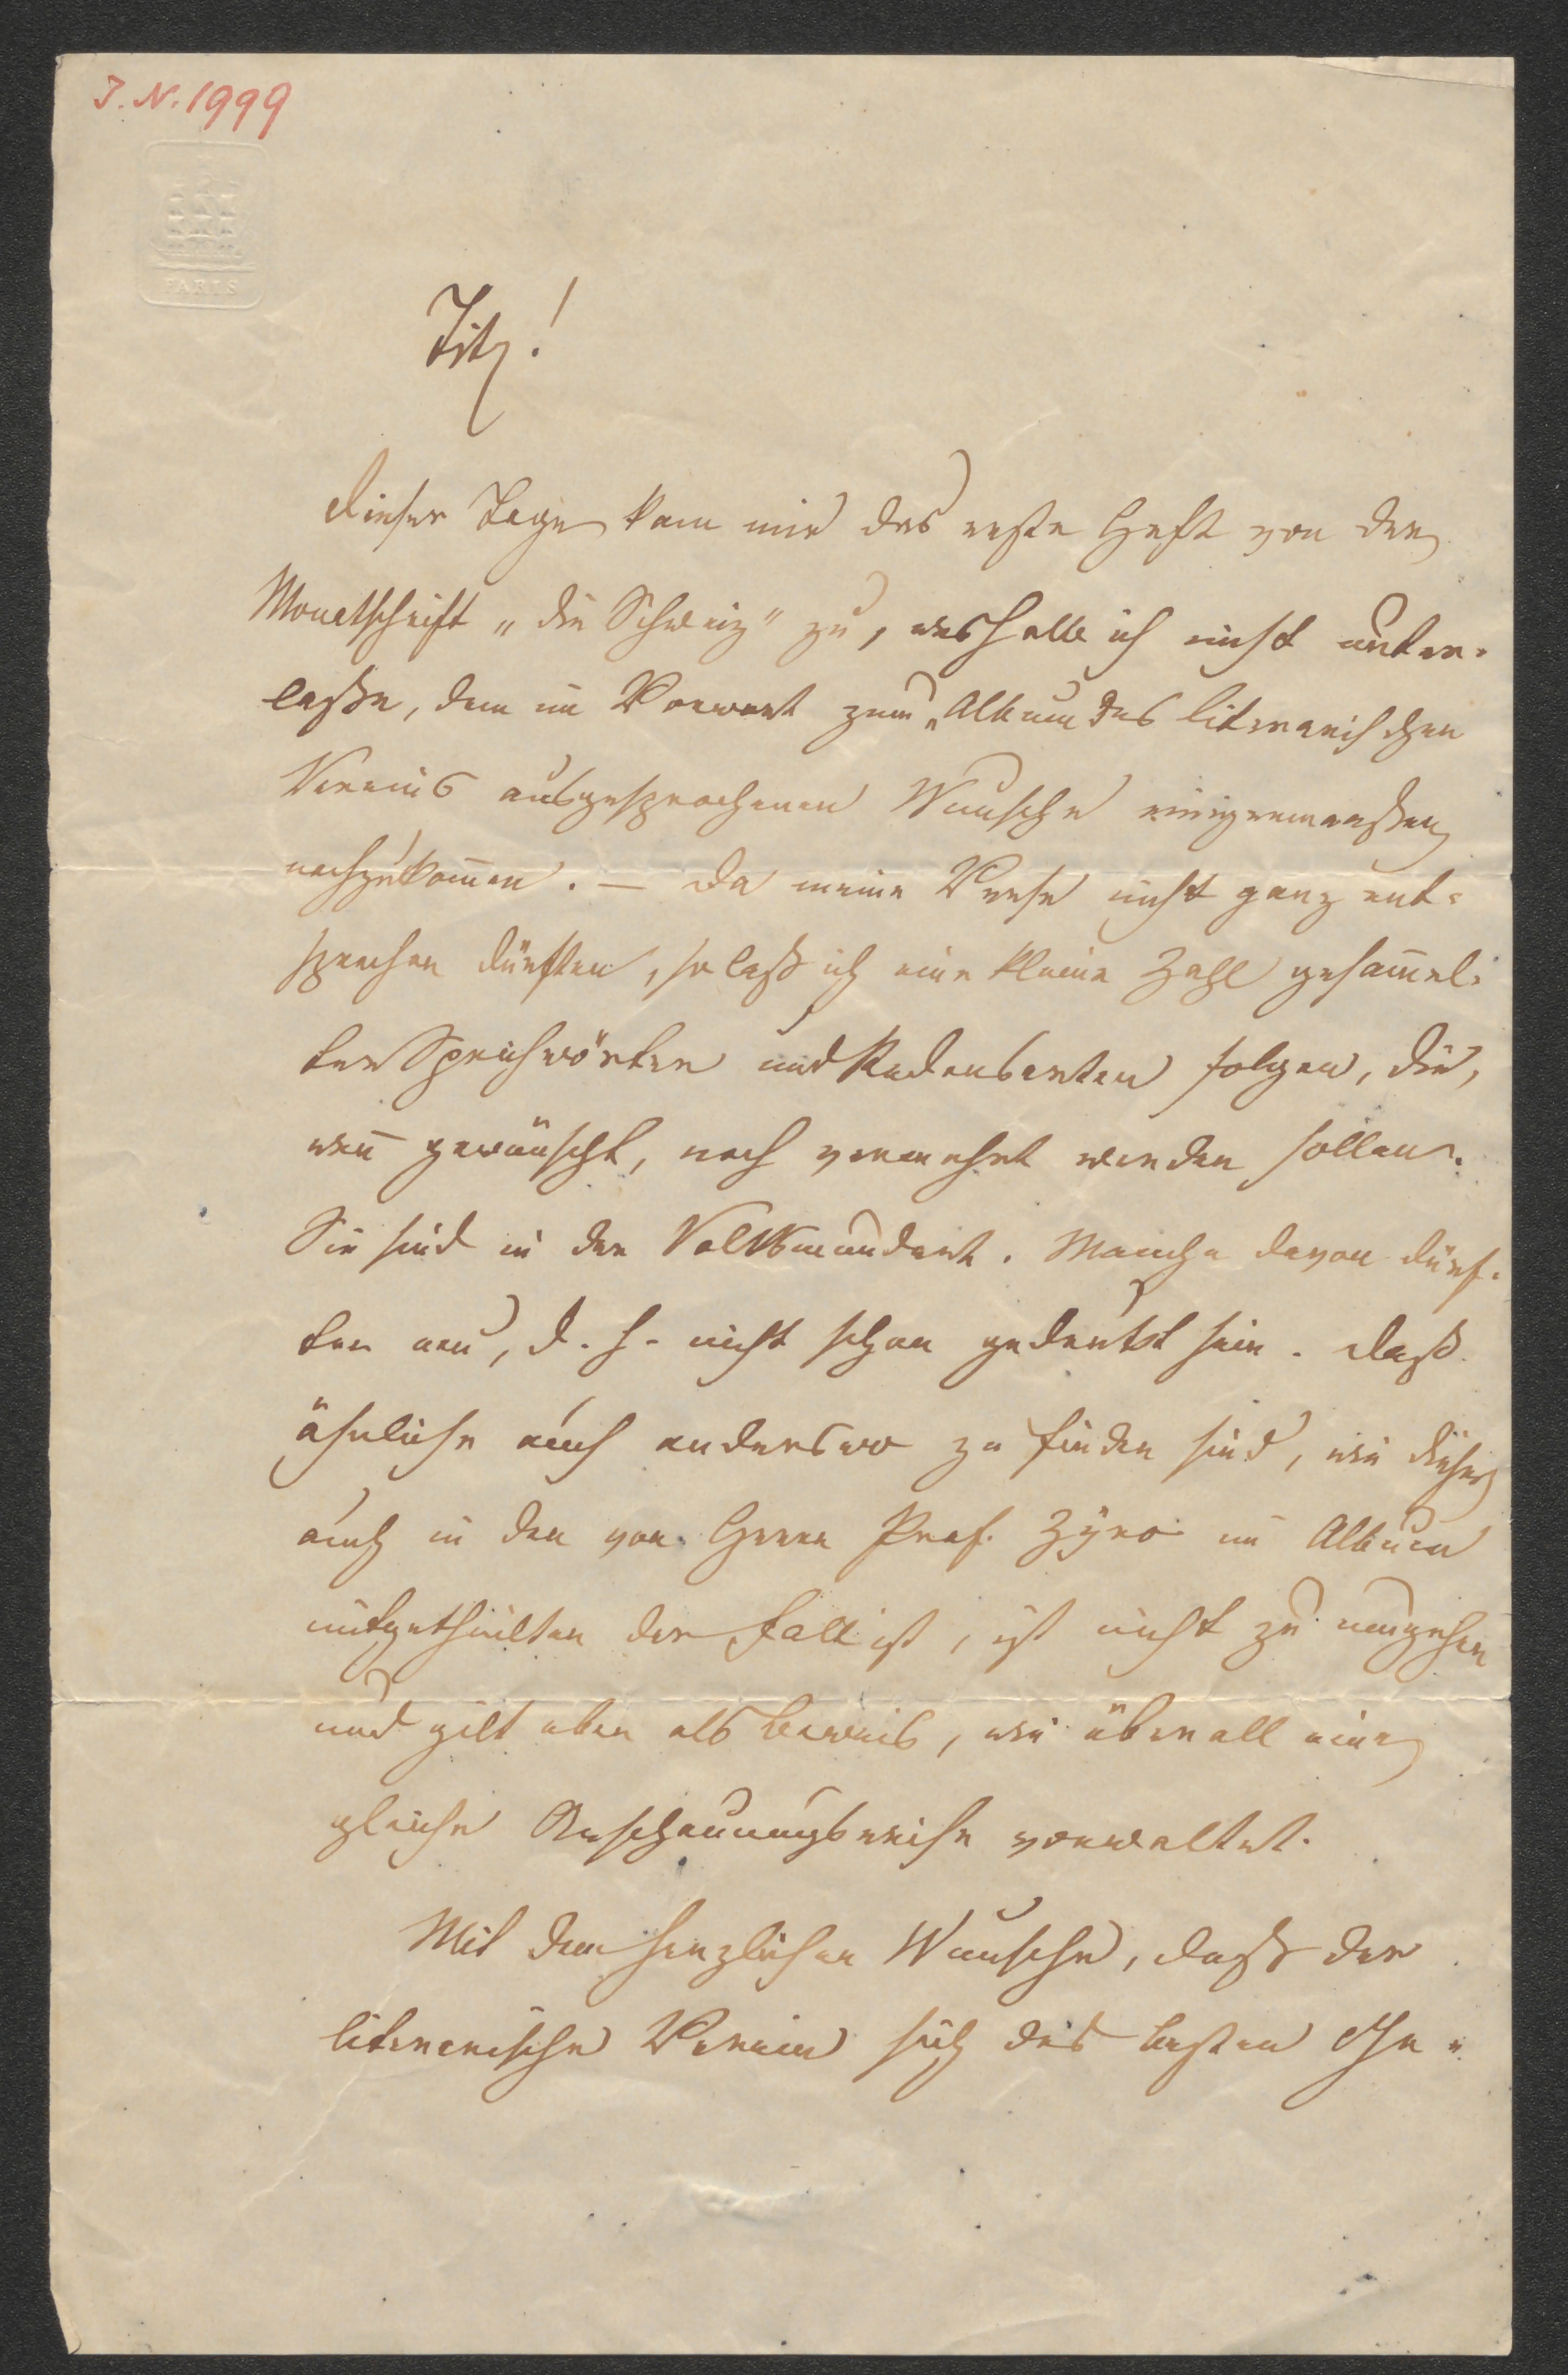 J. N. 1999
PARIS
Titl.!
Dieser Tage kam mir das erste Heft von der
Monatschrift „die Schweiz" zu, weshalb ich nicht unter-
lasse, dem im Vorwort zum „Album des literarischen
Vereins ausgesprochenen Wunsche einigermaßen
nachzukom̄en. — Da meine Verse nicht ganz ent-
sprechen dürften, so laß ich eine kleine Zahl gesam̄el-
ter Sprichwörter und Redensarten folgen, die,
wen̄ gewünscht, noch vermehrt werden sollen.
Sie sind in der Volksmundart. Manche davon dürf-
ten neu, d. h. nicht schon gedruckt sein. Daß
ähnliche auch anderswo zu finden sind, wie dieses
auch in den von Herrn Prof. Zyro im Album
mitgetheilten der Fall ist, ist nicht zu umgehen
und gilt eben als Beweis, wie überall eine
gleiche Anschauungsweise vorwaltet.
Mit dem herzlichen Wunsche, daß der
literarische Verein sich des besten Ge-